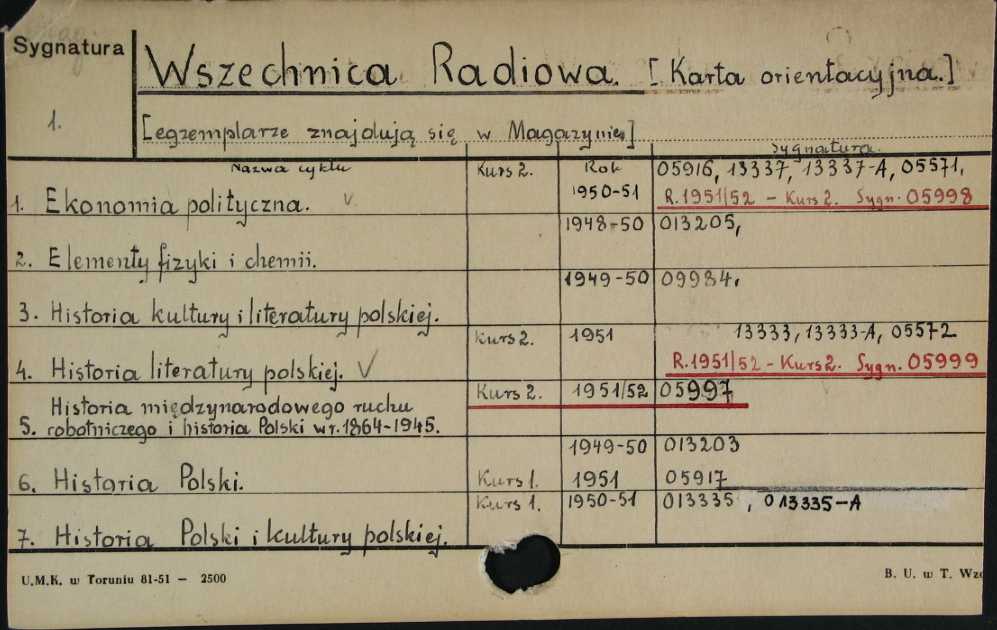 Sygnatura
Wszechnica Radiowa. [Karta orientacyjna.]
1.
[egzemplarze znajdują się w Magazynie]
Nazwa cyklu Kurs 2. Rok Sygnatura.
05916, 13337, 13337-A, 05571,
1. Ekonomia polityczna. v 1950-51 R.1951/52 - Kurs 2. Sygn. 05998
1948-50 013205,
2. Elementy fizyki i chemii.
1949-50 09984.
3. Historia kultury i literatury polskiej.
Kurs 2. 1951 13333, 13333-A, 05572
4. Historia literatury polskiej. V R.1951/52 - Kurs 2. Sygn. 05999
Kurs 2. 1951/52 05997
Historia międzynarodowego ruchu
5. robotniczego i historia Polski w r. 1864-1945.
1949-50 013203
6. Historia Polski. Kurs 1. 1951 05917
Kurs 1. 1950-51 013335, 013335-A
7. Historia Polski i kultury polskiej.
U.M.K. w Toruniu 81-51 — 2500
B. U. w T.